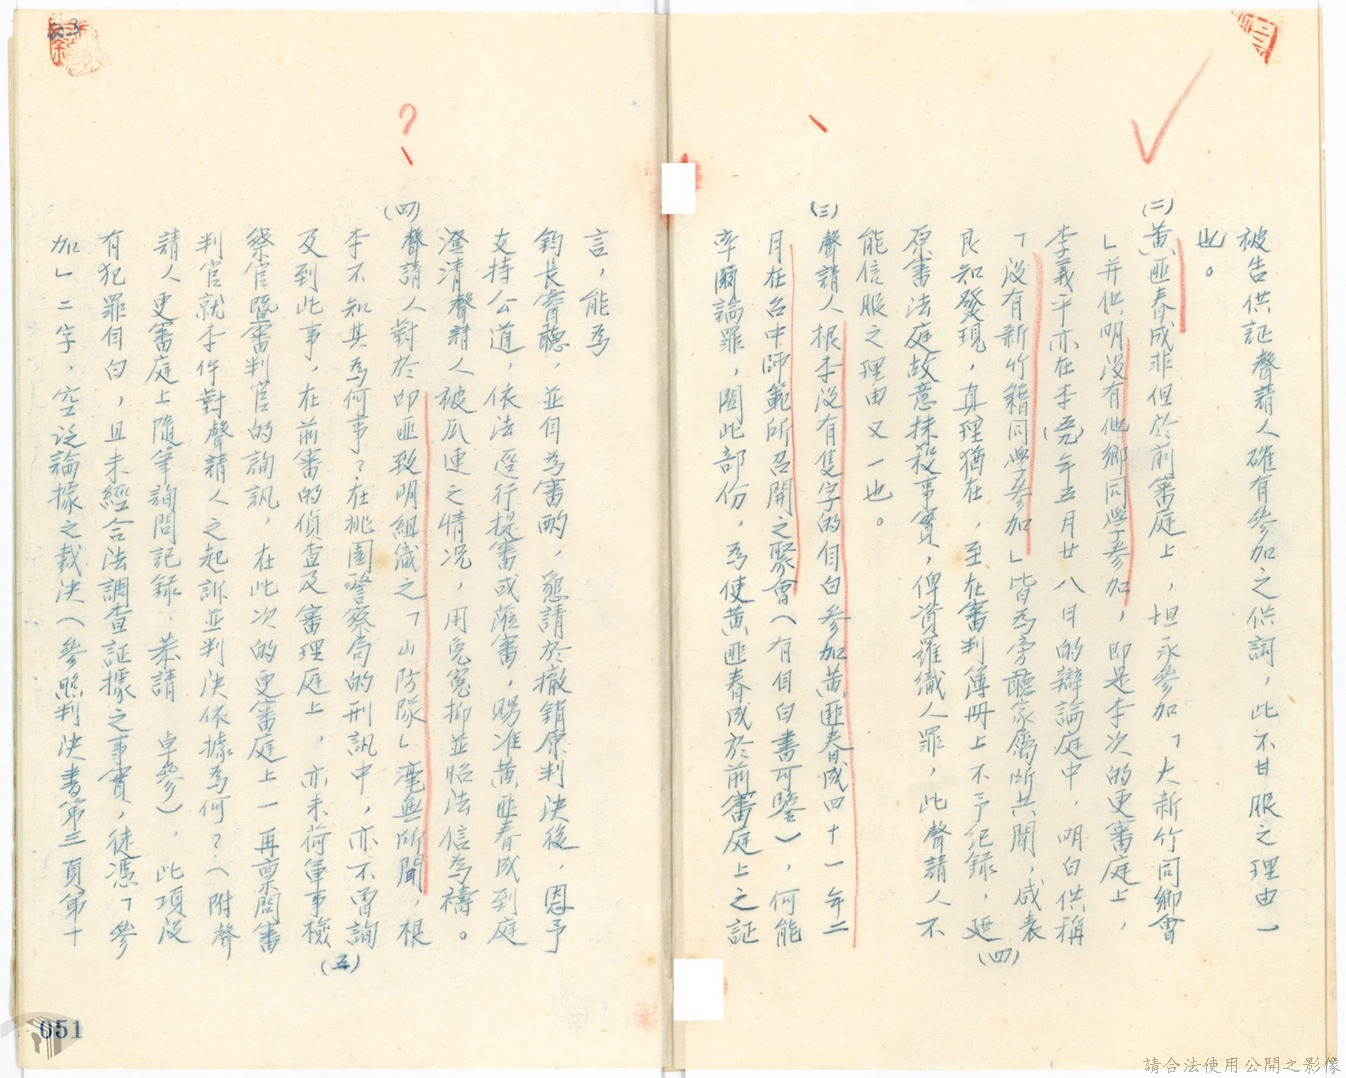 被告供証聲請人確有參加之供詞，此不甘服之理由一
也。
(二)黃匪春成非但於前審庭上，坦承參加「大新竹同鄉會
」并供明沒有他鄉同學參加，即是李次的更審庭上，
李義平亦在本(五九)年五月廿八日的辯論庭中，明白供稱
「沒有新竹籍同學參加」皆為旁聽家屬所共聞，咸表
良知發現，真理猶在，至在審判簿冊上不予紀錄，
原審法庭故意抹殺事實，俾資羅織人罪，此聲請人不
能信服之理由又一也。
(三)聲請人根本沒有隻字的自白參加黃匪春成四十一年二
月在台中師範所召開之聚會（有自白書可鑒），何能
率爾論罪，關此部份，為使黃匪春成於前審庭上之証
(四)
言，能為
鈞長睿聽，並自為審酌，懇請於撤銷原判決後，恩予
支持公道，依法逕行提審或蒞審，賜准黃匪春成到庭
澄清聲請人被瓜連之情況，用免冤抑並昭法信為禱。
(四)聲請人對於邱匪致明組織之「山防隊」毫無所聞，根
本不知其為何事？在桃園警察局的刑訊中，亦不曾詢
及到此事，在前審的偵查及審理庭上，亦未荷軍事檢
察官暨審判官的詢訊，在此次的更審庭上一再稟問審
判官就本件對聲請人之起訴並判決依據為何？（附聲
請人更審庭上隨筆詢問記錄，恭請　卓參），此項沒
有犯罪自白，且未經合法調查証據之事實，徒憑「參
加」二字，空泛論據之裁決（參照判決書第三頁第十
(五)
051
請合法使用公開之影像